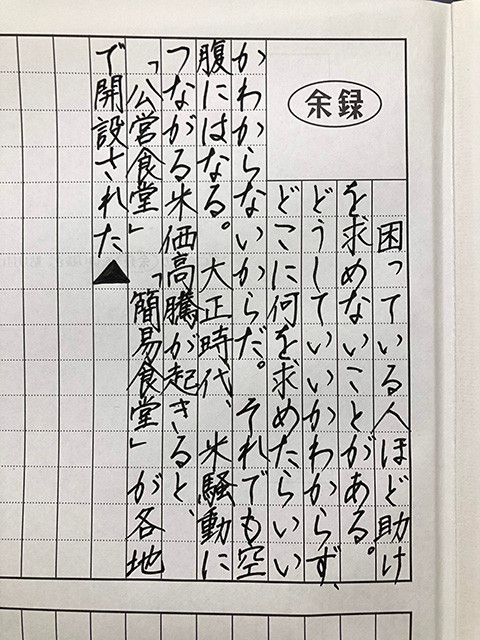 余録
困っている人ほど助け
を求めないことがある。
どうしていいかわからず、
どこに何を求めたらいい
かわからないからだ。それでも空
腹にはなる。大正時代、米騒動に
つながる米価高騰が起きると、
「公営食堂」「簡易食堂」が各地
で開設された▲